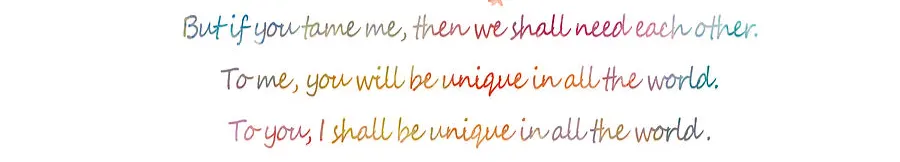 But if you tame me, then we shall need each other.
To me, you will be unique in all the world.
To you, I shall be unique in all the world.